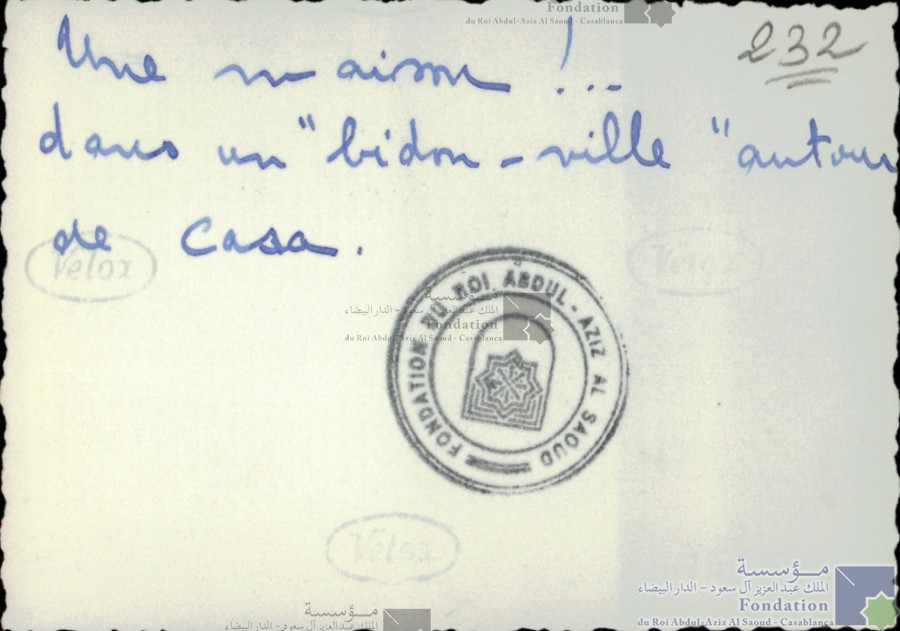 Fondation
du Roi Abdul-Aziz Al Saoud - Casablanca
232
Une maison !...
dans un "bidon-ville" autour
de Casa.
Velox
Velox
FONDATION DU ROI ABDUL-AZIZ AL SAOUD
مؤسسة
الملك عبد العزيز آل سعود - الدار البيضاء
Fondation
du Roi Abdul-Aziz Al Saoud - Casablanca
Velox
مؤسسة
الملك عبد العزيز آل سعود - الدار البيضاء
Fondation
du Roi Abdul-Aziz Al Saoud - Casablanca
مؤسسة
الملك عبد العزيز آل سعود - الدار البيضاء